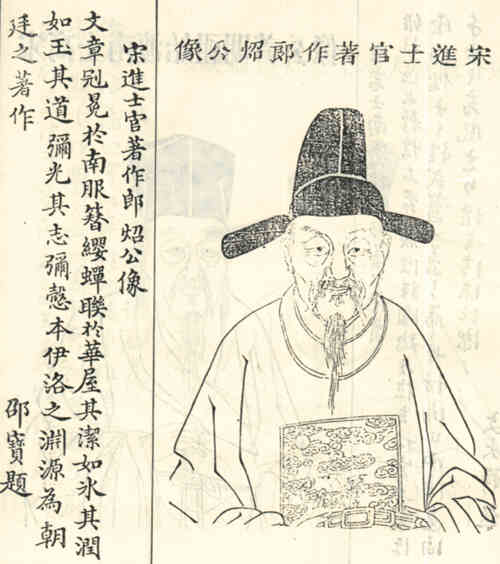 宋進士官著作郎炤公像
宋進士官著作郎炤公像
文章冠冕於南服簪纓蟬聯於華屋其潔如氷其潤
如玉其道彌光其志彌愨本伊洛之淵源為朝
廷之著作
邵寶題